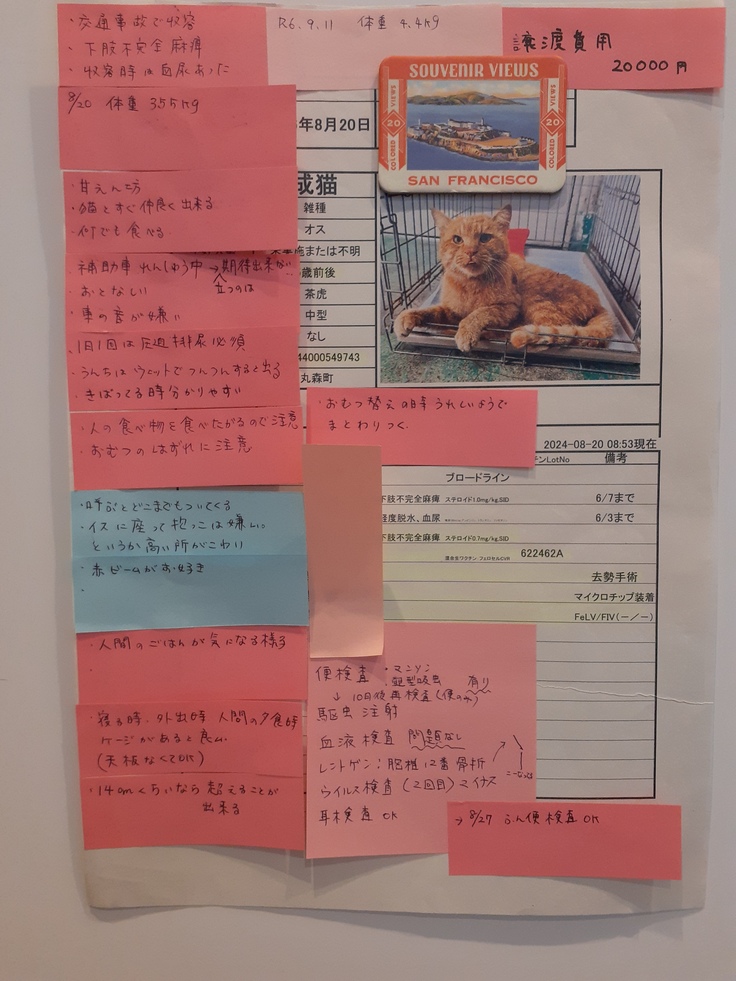 ・交通事故で収容
・下肢不完全麻痺
・収容時は血尿あった
R6.9.11 体重 4.4kg
譲渡費用
20000円
8/20 体重 3.55kg
年8月20日
SOUVENIR VIEWS
20
COLORED VIEWS
20
COLORED VIEWS
SAN FRANCISCO
・甘えん坊
・猫とすぐ仲良く出来る
・何でも食べる
成猫
雑種
オス
未実施または不明
歳前後
茶虎
中型
なし
44000549743
丸森町
補助車れんしゅう中→期待出来ない
立つのは
・おとなしい
・車の音が嫌い
・1日1回は圧迫排尿必須
・うんちはウェットでつんつんすると出る
・きばってる時分かりやすい
・人の食べ物を食べたがるので注意
・おむつのはずれに注意
・おむつ替えの時うれしいようで
まとわりつく
2024-08-20 08:53現在
チンLotNo
備考
ブロードライン
下肢不完全麻痺 ステロイド1.0mg/kg,SID 6/7まで
軽度脱水、血尿 6/3まで
下肢不完全麻痺 ステロイド0.7mg/kg,SID
混合生ワクチン フェロセルCVR 622462A
去勢手術
マイクロチップ装着
FeLV/FIV(－/－)
・呼ぶとどこまでもついてくる
・イスに座って抱っこは嫌い。
というか高い所がこわい
・赤ビームがお好き
・人間のごはんが気になる様子
・寝る時、外出時 人間の夕食時
ケージがあると良い
(天板なくてOK)
・14cmくらいなら超えることが
出来る
便検査 ・マンソン
・壺型吸虫 有り
↓ 10日後再検査(便のみ)
駆虫注射
血液検査 問題なし
レントゲン:胸椎12番骨折
ウイルス検査(2回目)マイナス
耳検査 OK
→8/27 ふん便検査OK